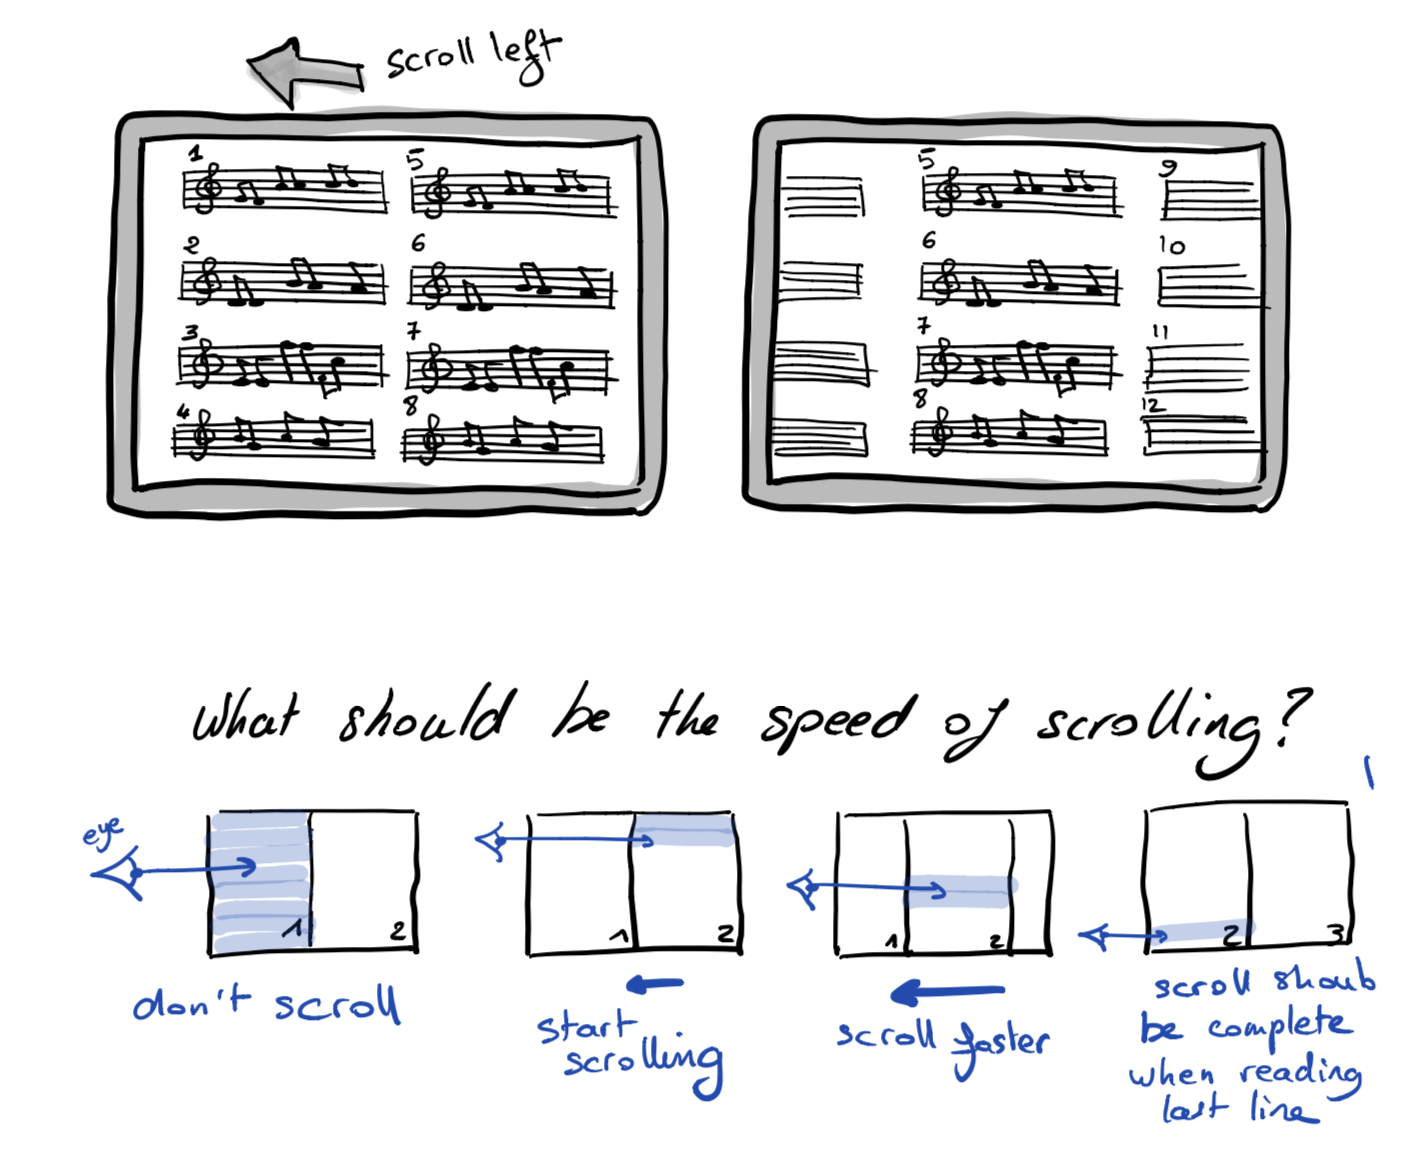 scroll left
1 5
2 6
3 7
4 8
5 9
6 10
7 11
8 12
What should be the speed of scrolling?
eye
1 2
don't scroll
1 2
start
scrolling
1 2
scroll faster
2 3
scroll shoub
be complete
when reading
last line